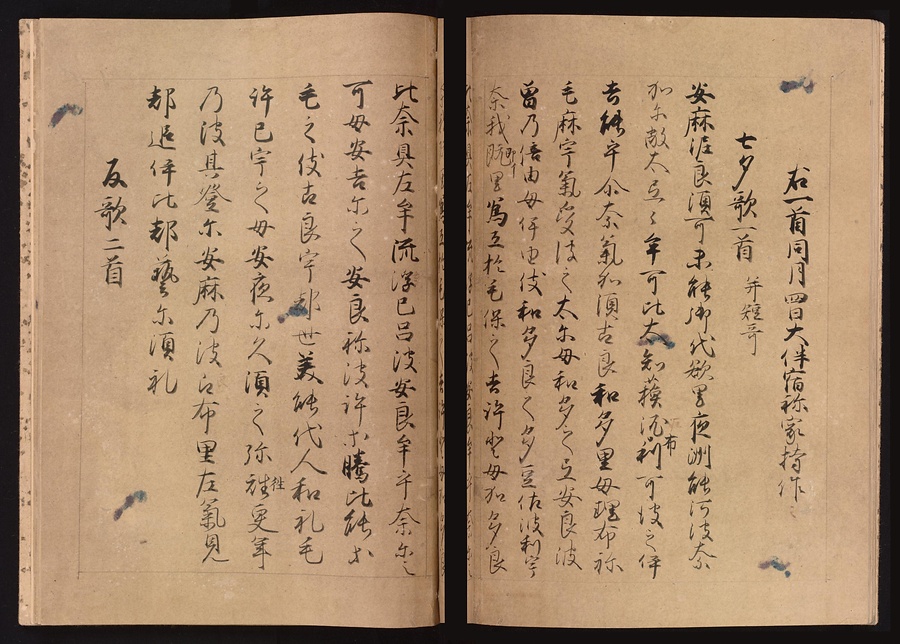 右一首同月四日大伴宿祢家持作之
七夕歌一首 并短哥
安麻泥良須可未能御代欲里夜洲能河波奈
加尓敝太弖々牟可比太知蘇泥布利可波之伊
吉能乎尓奈氣加須古良和多里母理布祢
毛麻宇氣受波之太尓母和多之弖安良波
曽乃倍由母伊由伎和多良之多豆佐波利宇
奈我既里為弖於毛保之吉許登母加多良
比奈具左牟流許己呂波安良牟乎奈尓之
可母安吉尓之安良祢波許等騰比能等
毛之伎古良宇都世美能代人和礼毛
許己宇之母安夜尓久須之弥徃更年
乃波其登尓安麻乃波良布里左氣見
都追伊比都藝尓須礼
反歌二首